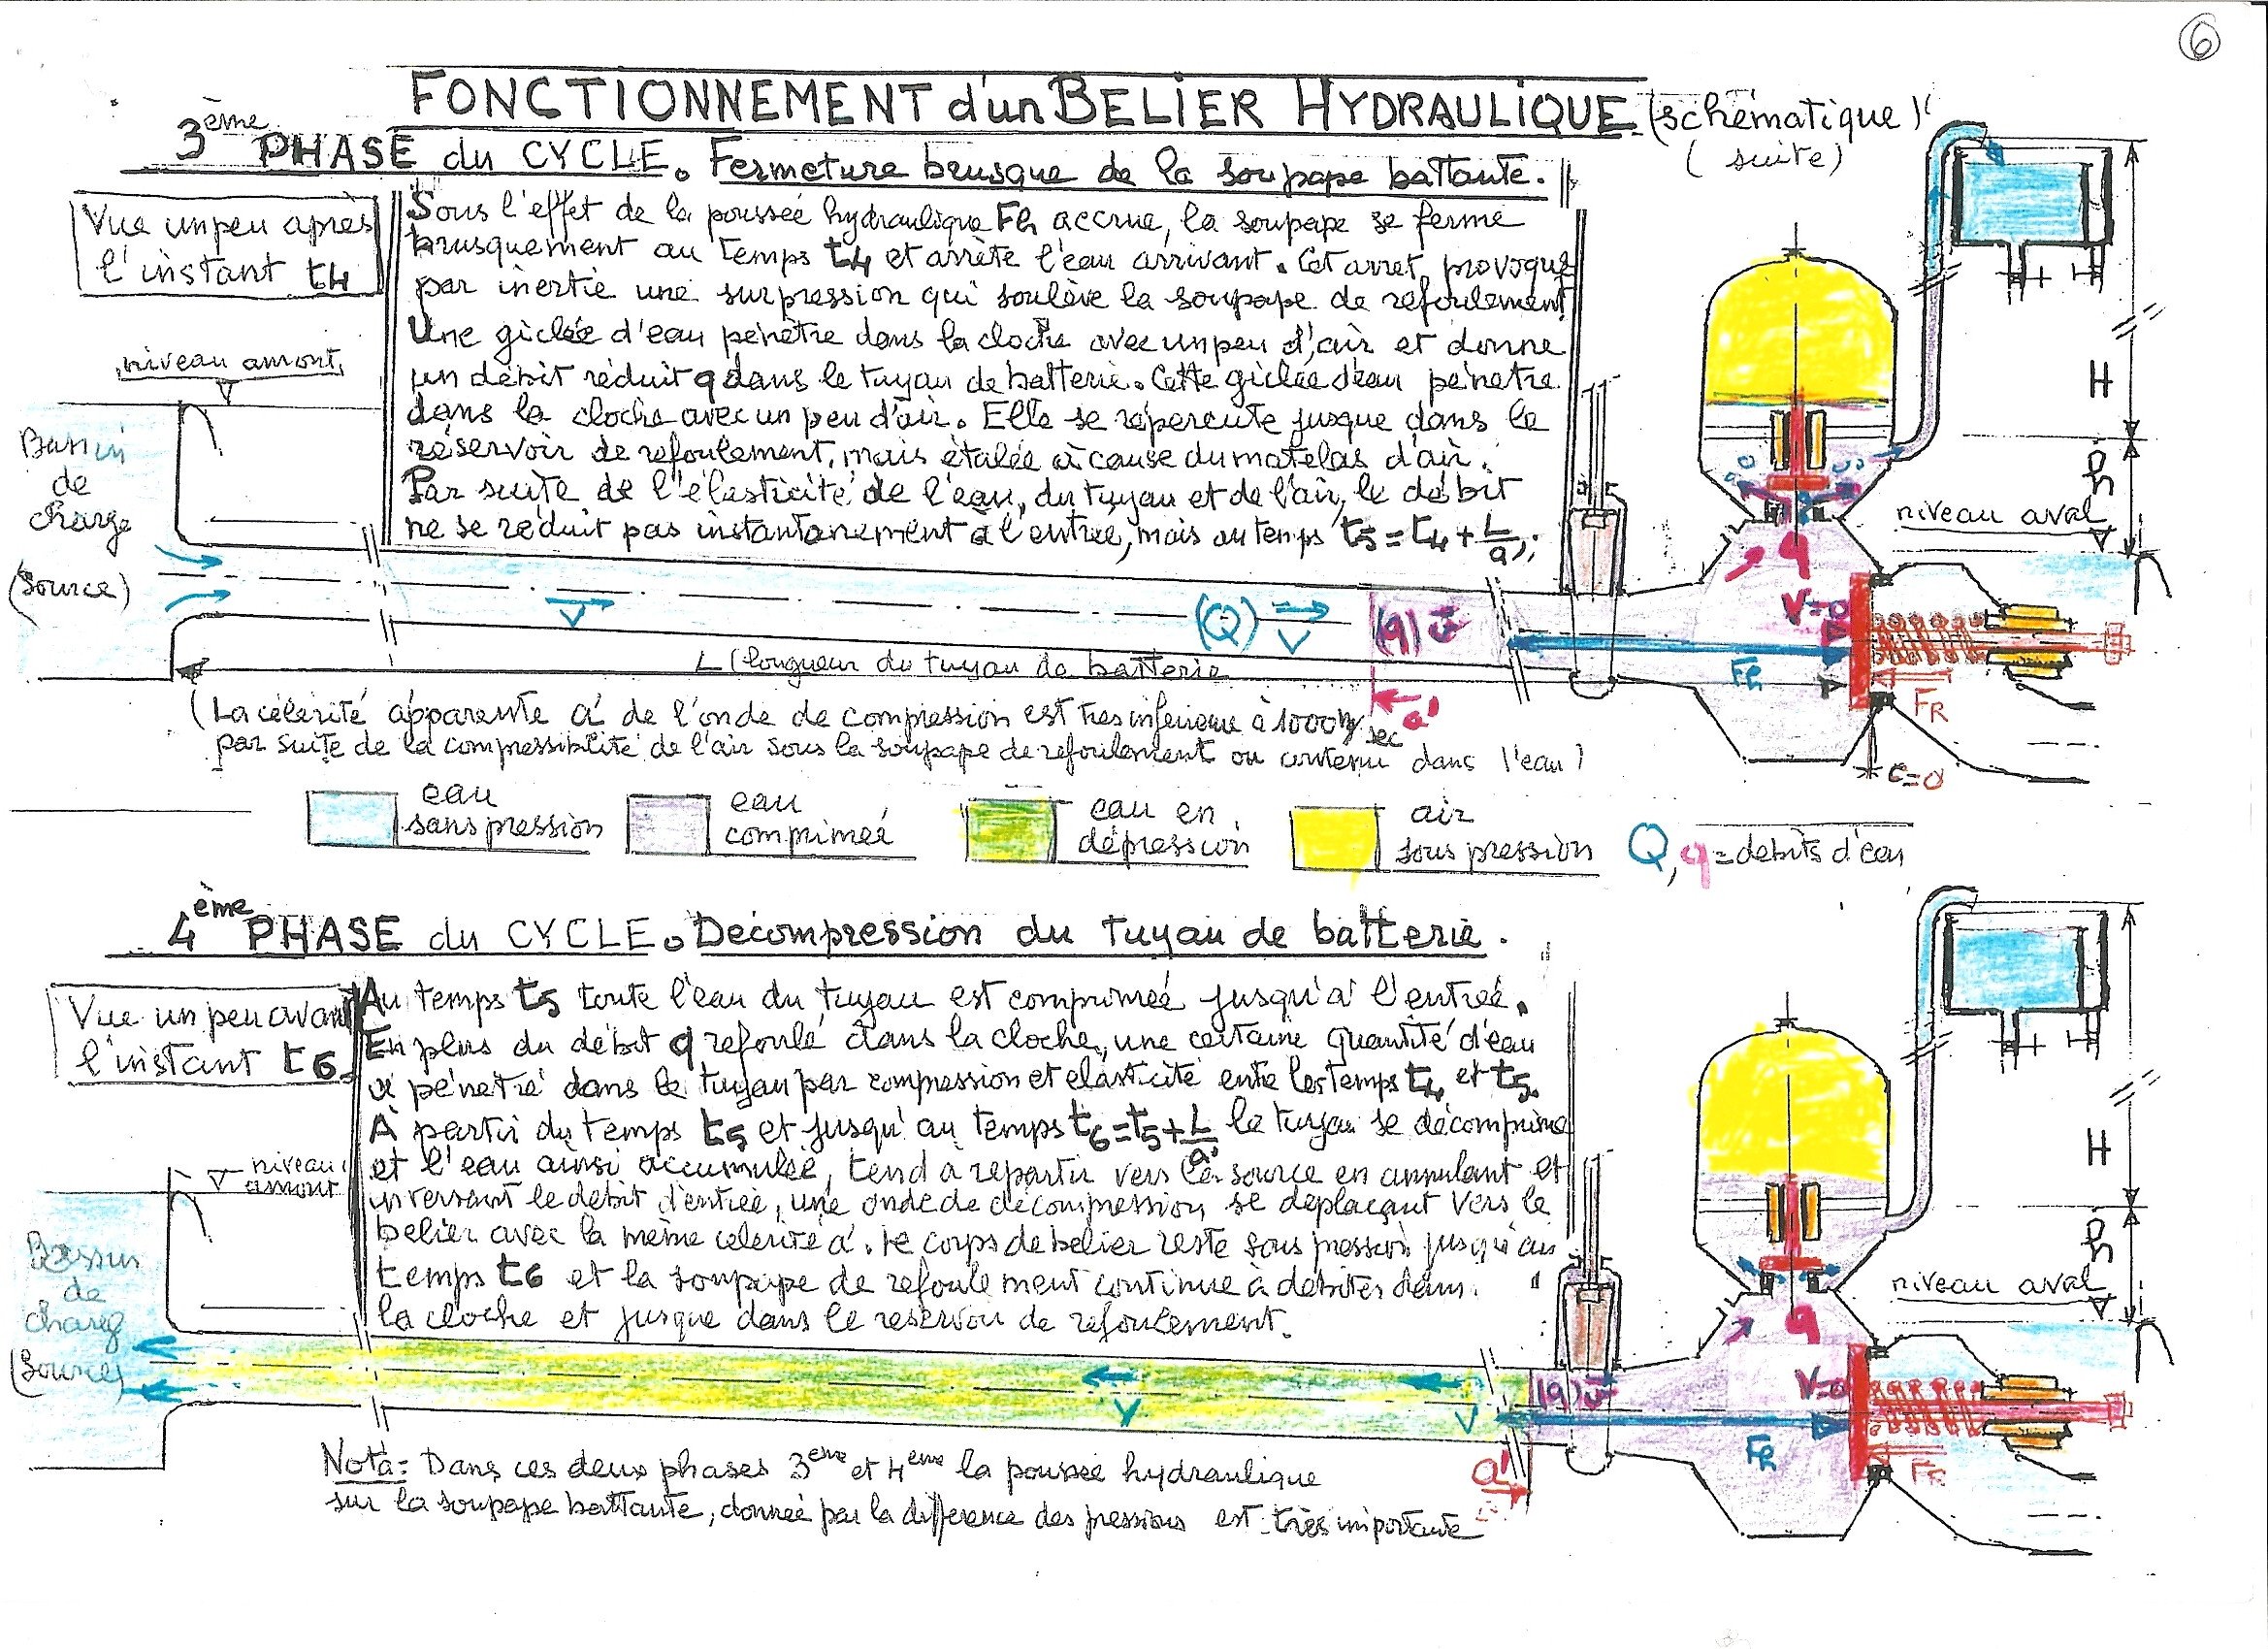 6
FONCTIONNEMENT d'un BELIER HYDRAULIQUE (schématique)
(suite)
3ème PHASE du CYCLE. Fermeture brusque de la soupape battante.
Vue un peu après
l'instant t4
Sous l'effet de la poussée hydraulique Fh accrue, la soupape se ferme
brusquement au temps t4 et arrête l'eau arrivant. Cet arret provoque
par inertie une surpression qui soulève la soupape de refoulement
Une giclée d'eau pénètre dans la cloche avec un peu d'air et donne
un débit réduit q dans le tuyau de batterie. Cette giclée d'eau pénètre
dans la cloche avec un peu d'air. Elle se répercute jusque dans le
réservoir de refoulement, mais étalée à cause du matelas d'air.
Par suite de l'élasticité de l'eau, du tuyau et de l'air, le débit
ne se réduit pas instantanément à l'entrée, mais au temps t5 = t4 + L/a');
niveau amont
Bassin
de
charge
(Source)
V
(Q) V
(q) v
L (longueur du tuyau de batterie
a'
q
V=0
Fh
FR
c=0
H
h
niveau aval
(La célérité apparente a' de l'onde de compression est très inférieure à 1000 m/sec
par suite de la compressibilité de l'air sous la soupape de refoulement ou contenu dans l'eau)
eau
sans pression
eau
comprimée
eau en
dépression
air
sous pression
Q, q = débits d'eau
4ème PHASE du CYCLE. Décompression du tuyau de batterie.
Vue un peu avant
l'instant t6
Au temps t5 toute l'eau du tuyau est comprimée jusqu'à l'entrée.
En plus du débit q refoulé dans la cloche, une certaine quantité d'eau
a pénétré dans le tuyau par compression et élasticité entre les temps t4 et t5.
A partir du temps t5 et jusqu'au temps t6 = t5 + L/a' le tuyau se décomprime
et l'eau ainsi accumulée, tend à repartir vers la source en annulant et
inversant le débit d'entrée, une onde de décompression se déplaçant vers le
belier avec la même célérité a'. Le corps de belier reste sous pression jusqu'au
temps t6 et la soupape de refoulement continue à débiter dans
la cloche et jusque dans le réservoir de refoulement.
niveau
amont
Bassin
de
charge
(Source)
V
V
(q) v
a'
q
V=0
Fh
FR
H
h
niveau aval
Nota: Dans ces deux phases 3ème et 4ème la poussée hydraulique
sur la soupape battante, donnée par la différence des pressions est très importante